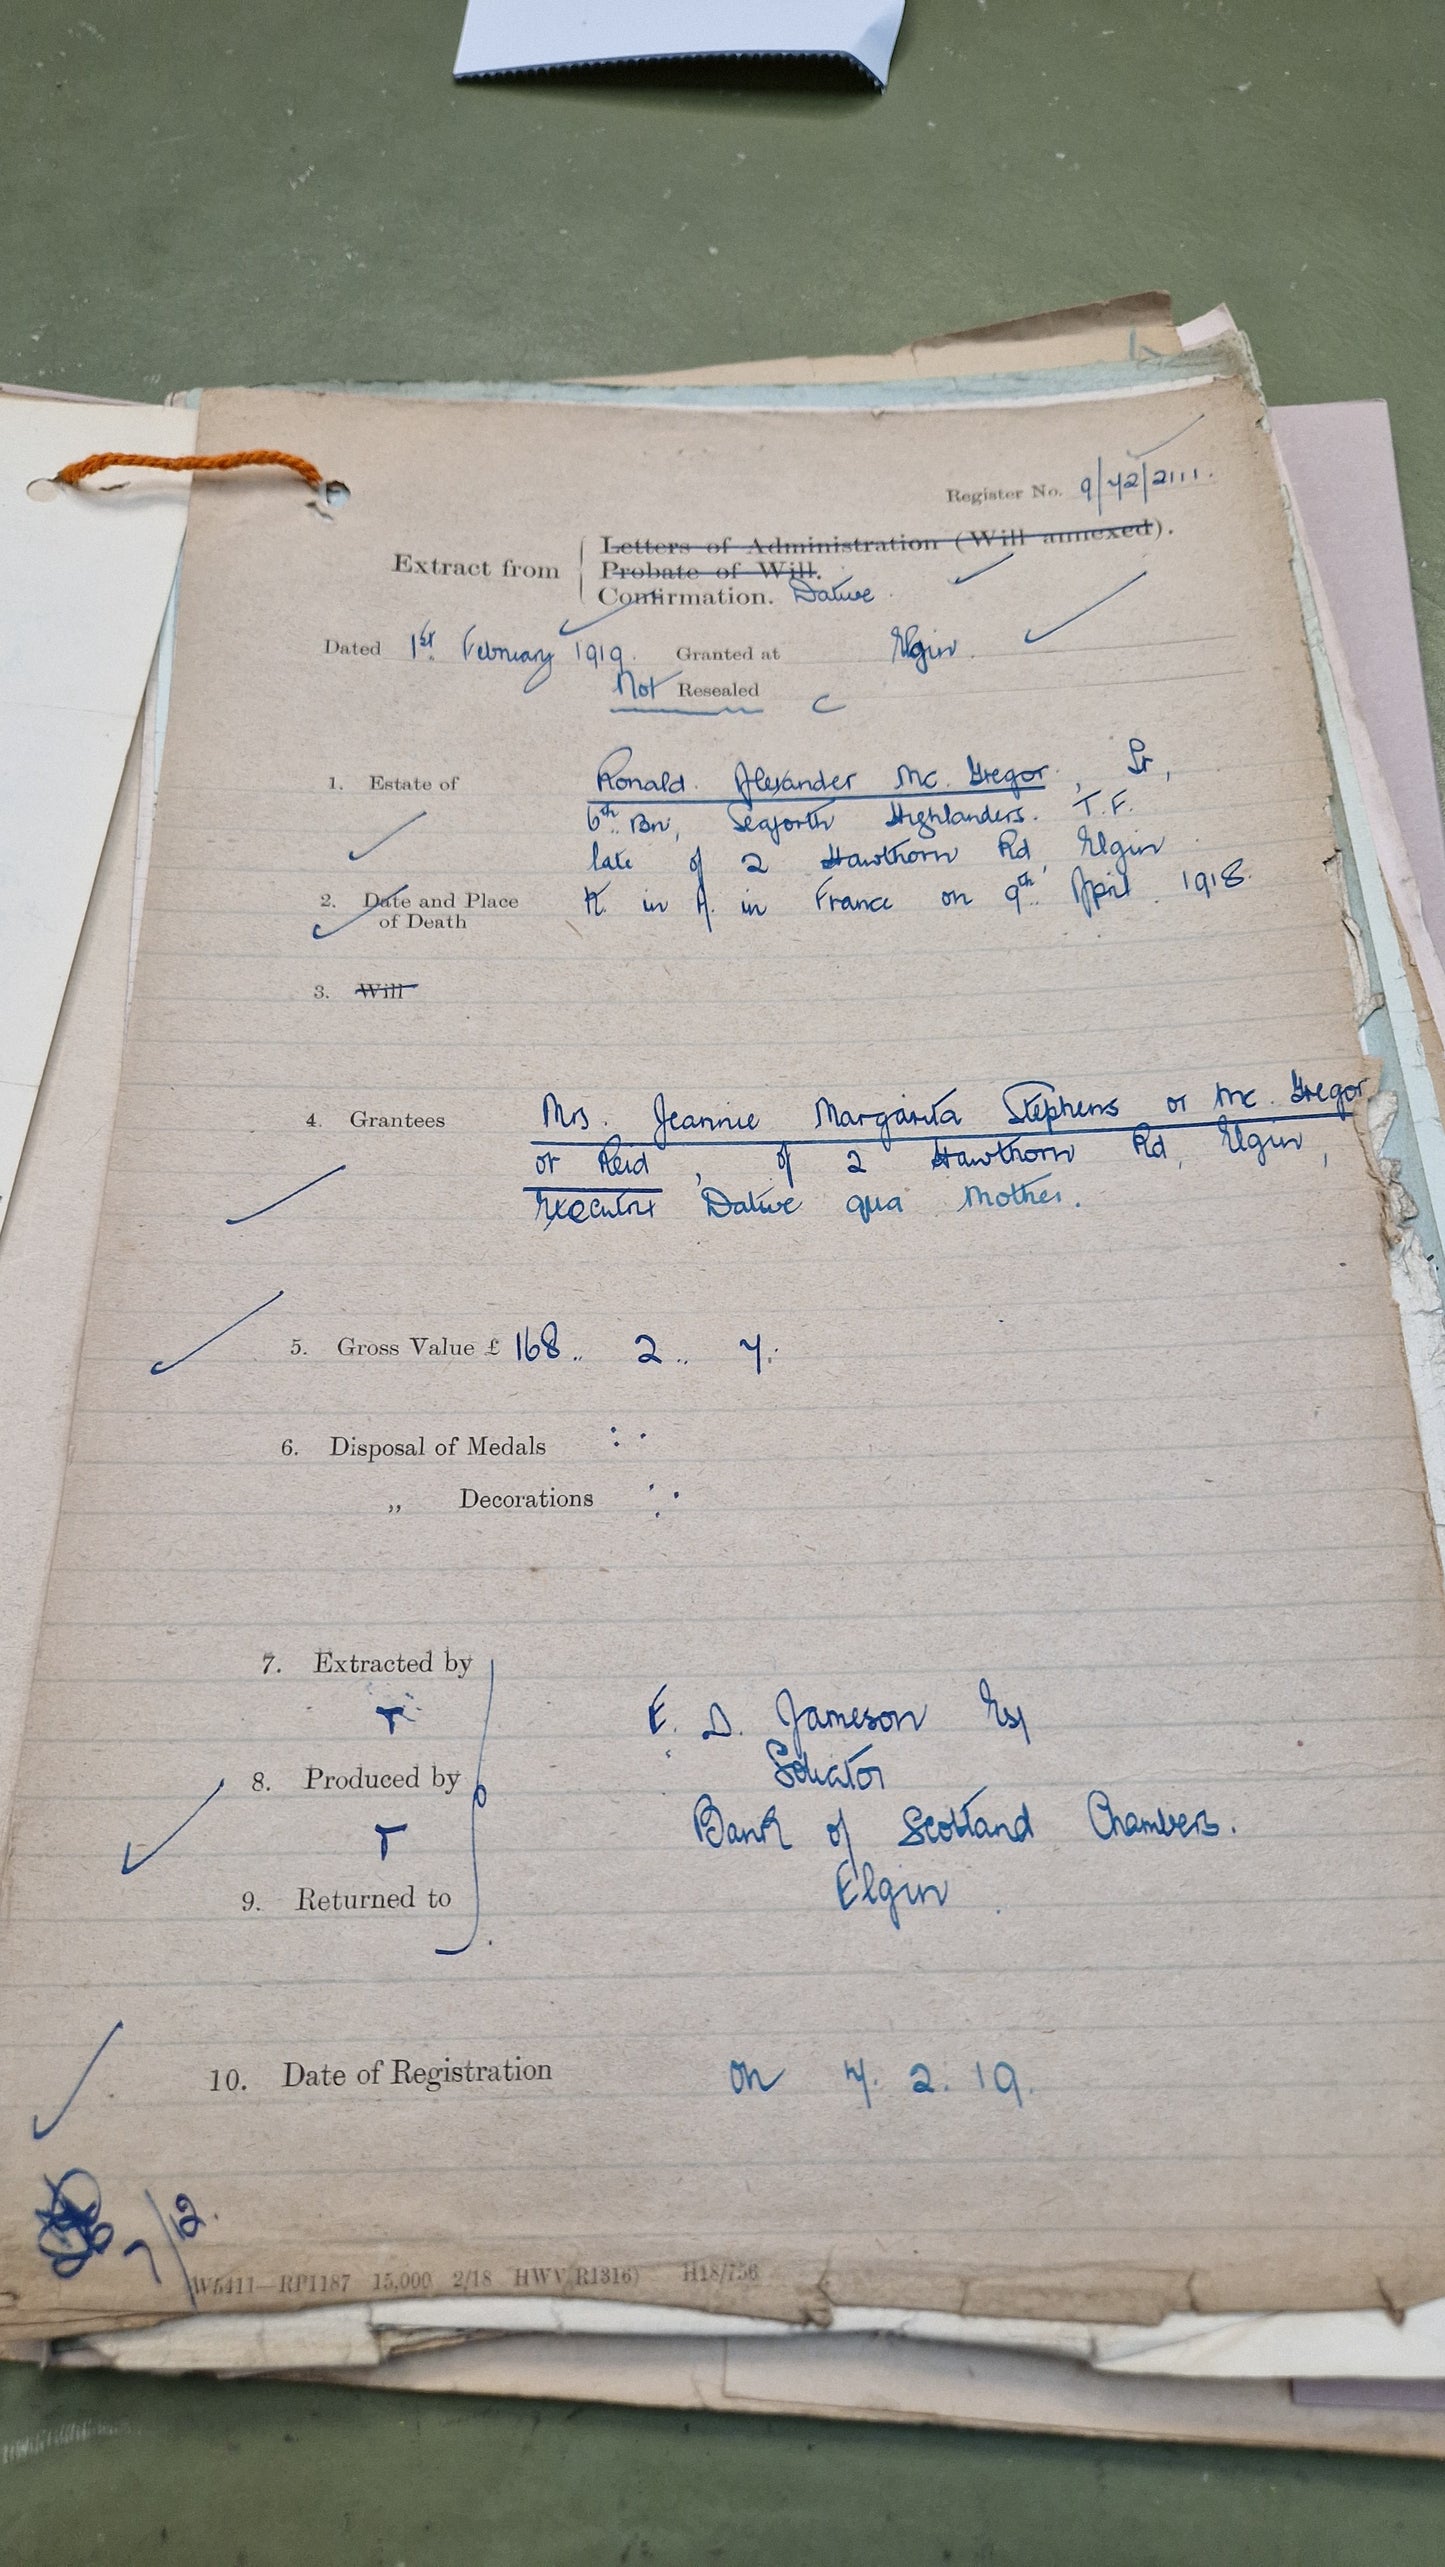 Register No. 9/42/2111.
Letters of Administration (Will annexed).
Extract from Probate of Will.
Confirmation. Dative
Dated 1st February 1919. Granted at Elgin.
Not Resealed
1. Estate of Ronald Alexander McGregor, Lt,
6th Bn, Seaforth Highlanders. T.F.
late of 2 Hawthorn Rd, Elgin
2. Date and Place of Death K. in A. in France on 9th April 1918.
3. Will
4. Grantees Mrs. Jeannie Margarita Stephens or McGregor
or Reid, of 2 Hawthorn Rd, Elgin,
Executrix Dative qua Mother.
5. Gross Value £ 168.. 2.. 7.
6. Disposal of Medals
„ Decorations
7. Extracted by
E. D. Jameson Esq
Solicitor
8. Produced by
Bank of Scotland Chambers.
Elgin
9. Returned to
10. Date of Registration on 7. 2. 19.
7/12.
W5411—RP1187 15,000 2/18 HWV(R1316) H18/756